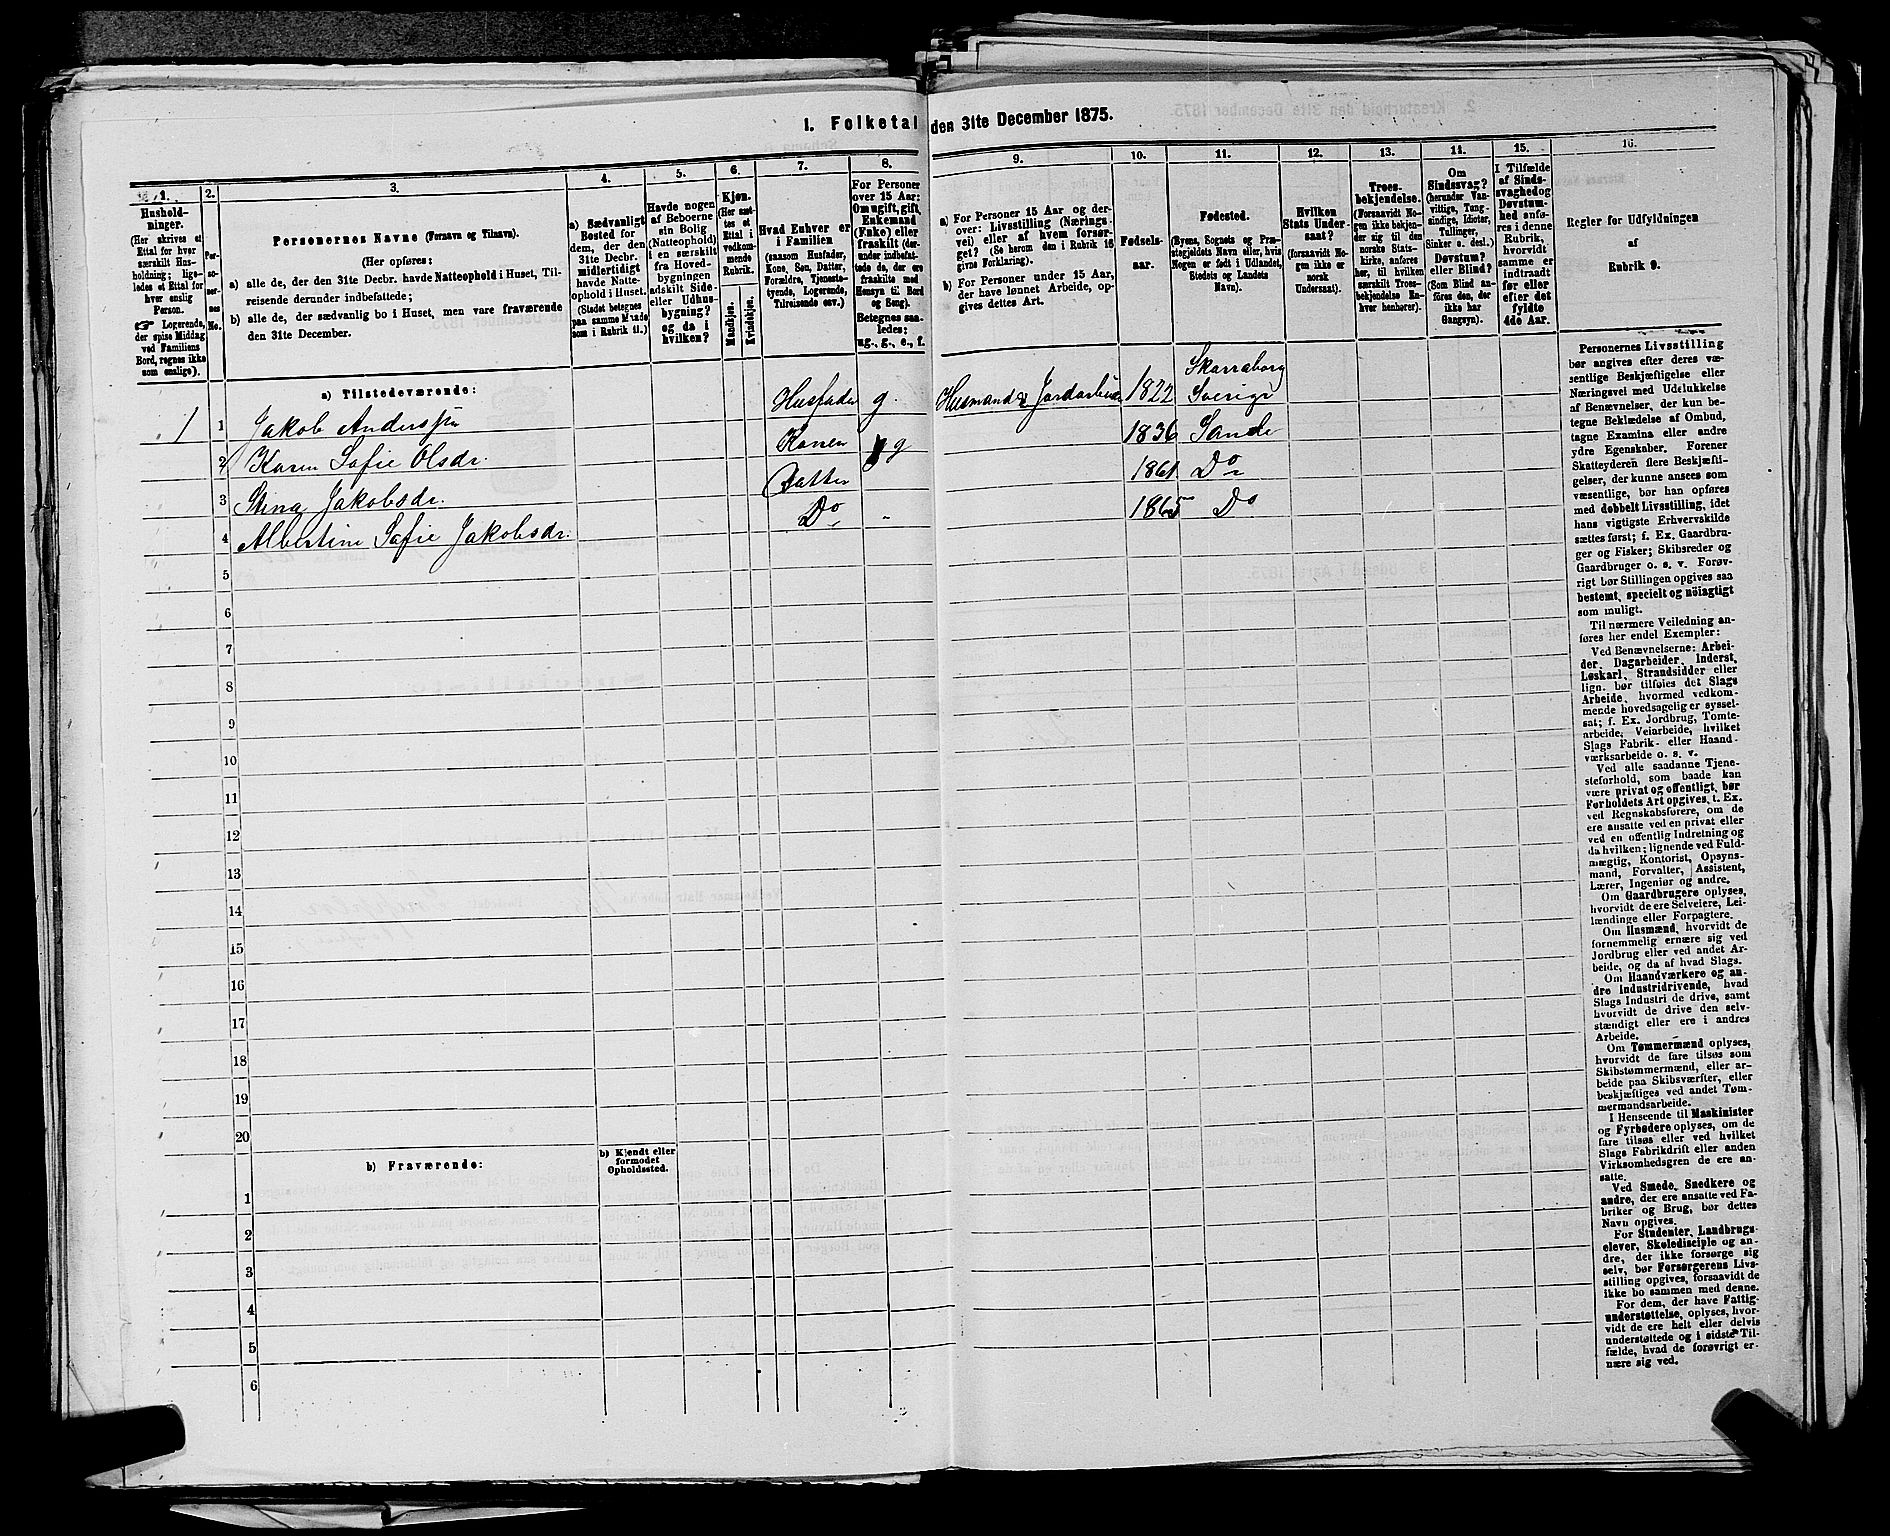 1. Folketal den 31te December 1875.
1.
2.
3.
4.
5.
6.
7.
8.
9.
10.
11.
12.
13.
14.
15.
16.
Hushold-
ninger.
(Her skrives et
Ettal for hver
særskilt Hus-
holdning; lige-
ledes et Ettal for
hver enslig
Person.
☞ Logerende,
der spise Middag
ved Familiens
Bord, regnes ikke
som enslige).
Per-
so-
ner-
nes
No.
Personernes Navne (Fornavn og Tilnavn).
(Her opføres:
a) alle de, der den 31te Decbr. havde Natteophold i Huset, Til-
reisende derunder indbefattede;
b) alle de, der sædvanlig bo i Huset, men vare fraværende
den 31te December.
a) Sædvanligt
Bosted for
dem, der den
31te Decbr.
midlertidigt
havde Natte-
ophold i Huset.
(Stedet betegnes
paa samme Maade
som i Rubrik 11.)
Havde nogen
af Beboerne
sin Bolig
(Natteophold)
i en særskilt
fra Hoved-
bygningen
adskilt Side-
eller Udhus-
bygning?
og da i
hvilken?
Kjøn.
(Her sæt-
tes et
Ettal i
vedkom-
mende
Rubrik.
Mandkjøn.
Kvindekjøn.
Hvad Enhver er
i Familien
(saasom Husfader,
Kone, Søn, Datter,
Forældre, Tjeneste-
tyende, Logerende,
Tilreisende osv.)
For Personer
over 15 Aar:
Om ugift, gift,
Enkemand
(Enke) eller
fraskilt (der-
under indbefat-
tede de, der ere
fraskilte med
Hensyn til Bord
og Seng).
Betegnes saa-
ledes:
ug., g., e., f.
a) For Personer 15 Aar og der-
over: Livsstilling (Nærings-
vei) eller af hvem forsør-
get? (Se herom den i Rubrik 16
givne Forklaring).
b) For Personer under 15 Aar,
der have lønnet Arbeide, op-
gives dettes Art.
Fødsels-
aar.
Fødested.
(Byens, Sognets og Præ-
stegjeldets Navn eller, hvis
Nogen er født i Udlandet,
Stedets og Landets
Navn).
Hvilken
Stats Under-
saat?
(forsaavidt No-
gen ikke er
norsk
Undersaat).
Troes-
bekjendelse.
(Forsaavidt No-
gen ikke bekjen-
der sig til den
norske Stats-
kirke, anføres
her, til hvilken
særskilt Troes-
bekjendelse En-
hver henhører).
Om
Sindssvag?
(herunder Van-
vittige, Tung-
sindige, Idioter,
Tullinger,
Sinker o. desl.)
Døvstum?
eller Blind?
(Som Blind an-
føres den, der
ikke har
Gangsyn).
I Tilfælde
af Sinds-
svaghed og
Døvstum-
hed anfø-
res i denne
Rubrik,
hvorvidt
samme er
indtraadt
før eller
efter det
fyldte
4de Aar.
Regler for Udfyldningen
af
Rubrik 9.
a) Tilstedeværende:
1 1 Jakob Anderssøn Husfader g. Husmand & Jordarbeider 1822 Skarraborg Sverige
2 Karen Sofie Olsdr. Konen g 1836 Sande
3 Stina Jakobsdr. Datter 1861 Do
4 Albertine Sofie Jakobsdr. Do 1865 Do
5
6
7
8
9
10
11
12
13
14
15
16
17
18
19
20
b) Fraværende:
b) Kjendt eller
formodet
Opholdssted.
1
2
3
4
5
6
Personernes Livsstilling
bør angives efter deres væ-
sentlige Beskjæftigelse eller
Næringsvei med Udelukkelse
af Benævnelser, der kun be-
tegne Beklædelse af Ombud,
tagne Examina eller andre
ydre Egenskaber. Forener
Skatteyderen flere Beskjæfti-
gelser, der kunne ansees som
væsentlige, bør han opføres
med dobbelt Livsstilling, idet
hans vigtigste Erhvervskilde
sættes først; f. Ex. Gaardbru-
ger og Fisker; Skibsreder og
Gaardbruger o. s. v. Forøv-
rigt bør Stillingen opgives saa
bestemt, specielt og nöiagtigt
som muligt.
Til nærmere Veiledning an-
føres her endel Exempler:
Ved Benævnelserne: Arbei-
der, Dagarbeider, Inderst,
Løskarl, Strandsidder eller
lign. bør tilføies det Slags
Arbeide, hvormed vedkom-
mende hovedsagelig er syssel-
sat; f. Ex. Jordbrug, Tomte-
arbeide, Veiarbeide, hvilket
Slags Fabrik- eller Haand-
værksarbeide o. s. v.
Ved alle saadanne Tjene-
steforhold, som baade kan
være privat og offentligt, bør
Forholdets Art opgives, t. Ex.
ved Regnskabsførere, om de
ere ansatte ved en privat eller
ved en offentlig Indretning og
da hvilken; lignende ved Fuld-
mægtig, Kontorist, Opsyns-
mand, Forvalter, Assistent,
Lærer, Ingeniør og andre.
Om Gaardbrugere oplyses,
hvorvidt de ere Selveiere, Lei-
lændinge eller Forpagtere.
Om Husmænd, hvorvidt de
fornemmelig ernære sig ved
Jordbrug eller ved andet Ar-
beide, og da af hvad Slags.
Om Haandværkere og an-
dre Industridrivende, hvad
Slags Industri de drive, samt
hvorvidt de drive den selv-
stændigt eller ere i andres
Arbeide.
Om Tømmermænd oplyses,
hvorvidt de fare tilsøs som
Skibstømmermænd, eller ar-
beide paa Skibsværfter, eller
beskjæftiges ved andet Tøm-
mermandsarbeide.
I Henseende til Maskinister
og Fyrbødere oplyses, om de
fare tilsøs eller ved hvilket
Slags Fabrikdrift eller anden
Virksomhedsgren de ere an-
satte.
Ved Smede, Snedkere og
andre, der ere ansatte ved Fa-
briker og Brug, bør dettes
Navn opgives.
For Studenter, Landbrugs-
elever, Skoledisciple og an-
dre, der ikke forsørge sig
selv, bør Forsørgerens Livs-
stilling opgives, forsaavidt de
ikke bo sammen med denne.
For dem, der have Fattig-
understøttelse, oplyses, hvor-
vidt de ere helt eller delvis
understøttede og i sidste Til-
fælde, hvad de forøvrigt er-
nære sig ved.